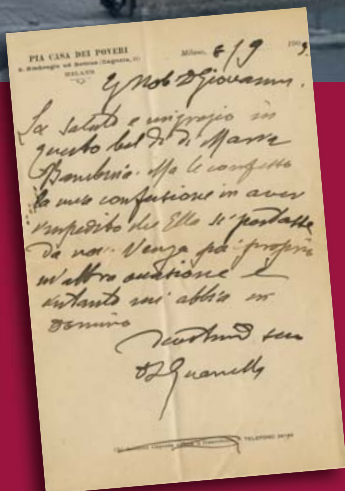 PIA CASA DEI POVERI
S. Ambrogio ad Nemus
MILANO
Milano, 8/9 190
Nob D Giovanni
La saluto e ringrazio in
questo bel dì di Maria
Bambina. Ma le confesso
la mia confusione in aver
impedito che Ella si portasse
da noi. Venga poi proprio
in altra occasione e
intanto mi abbia in
Domino
Devotmo suo
D L Guanella
TELEFONO